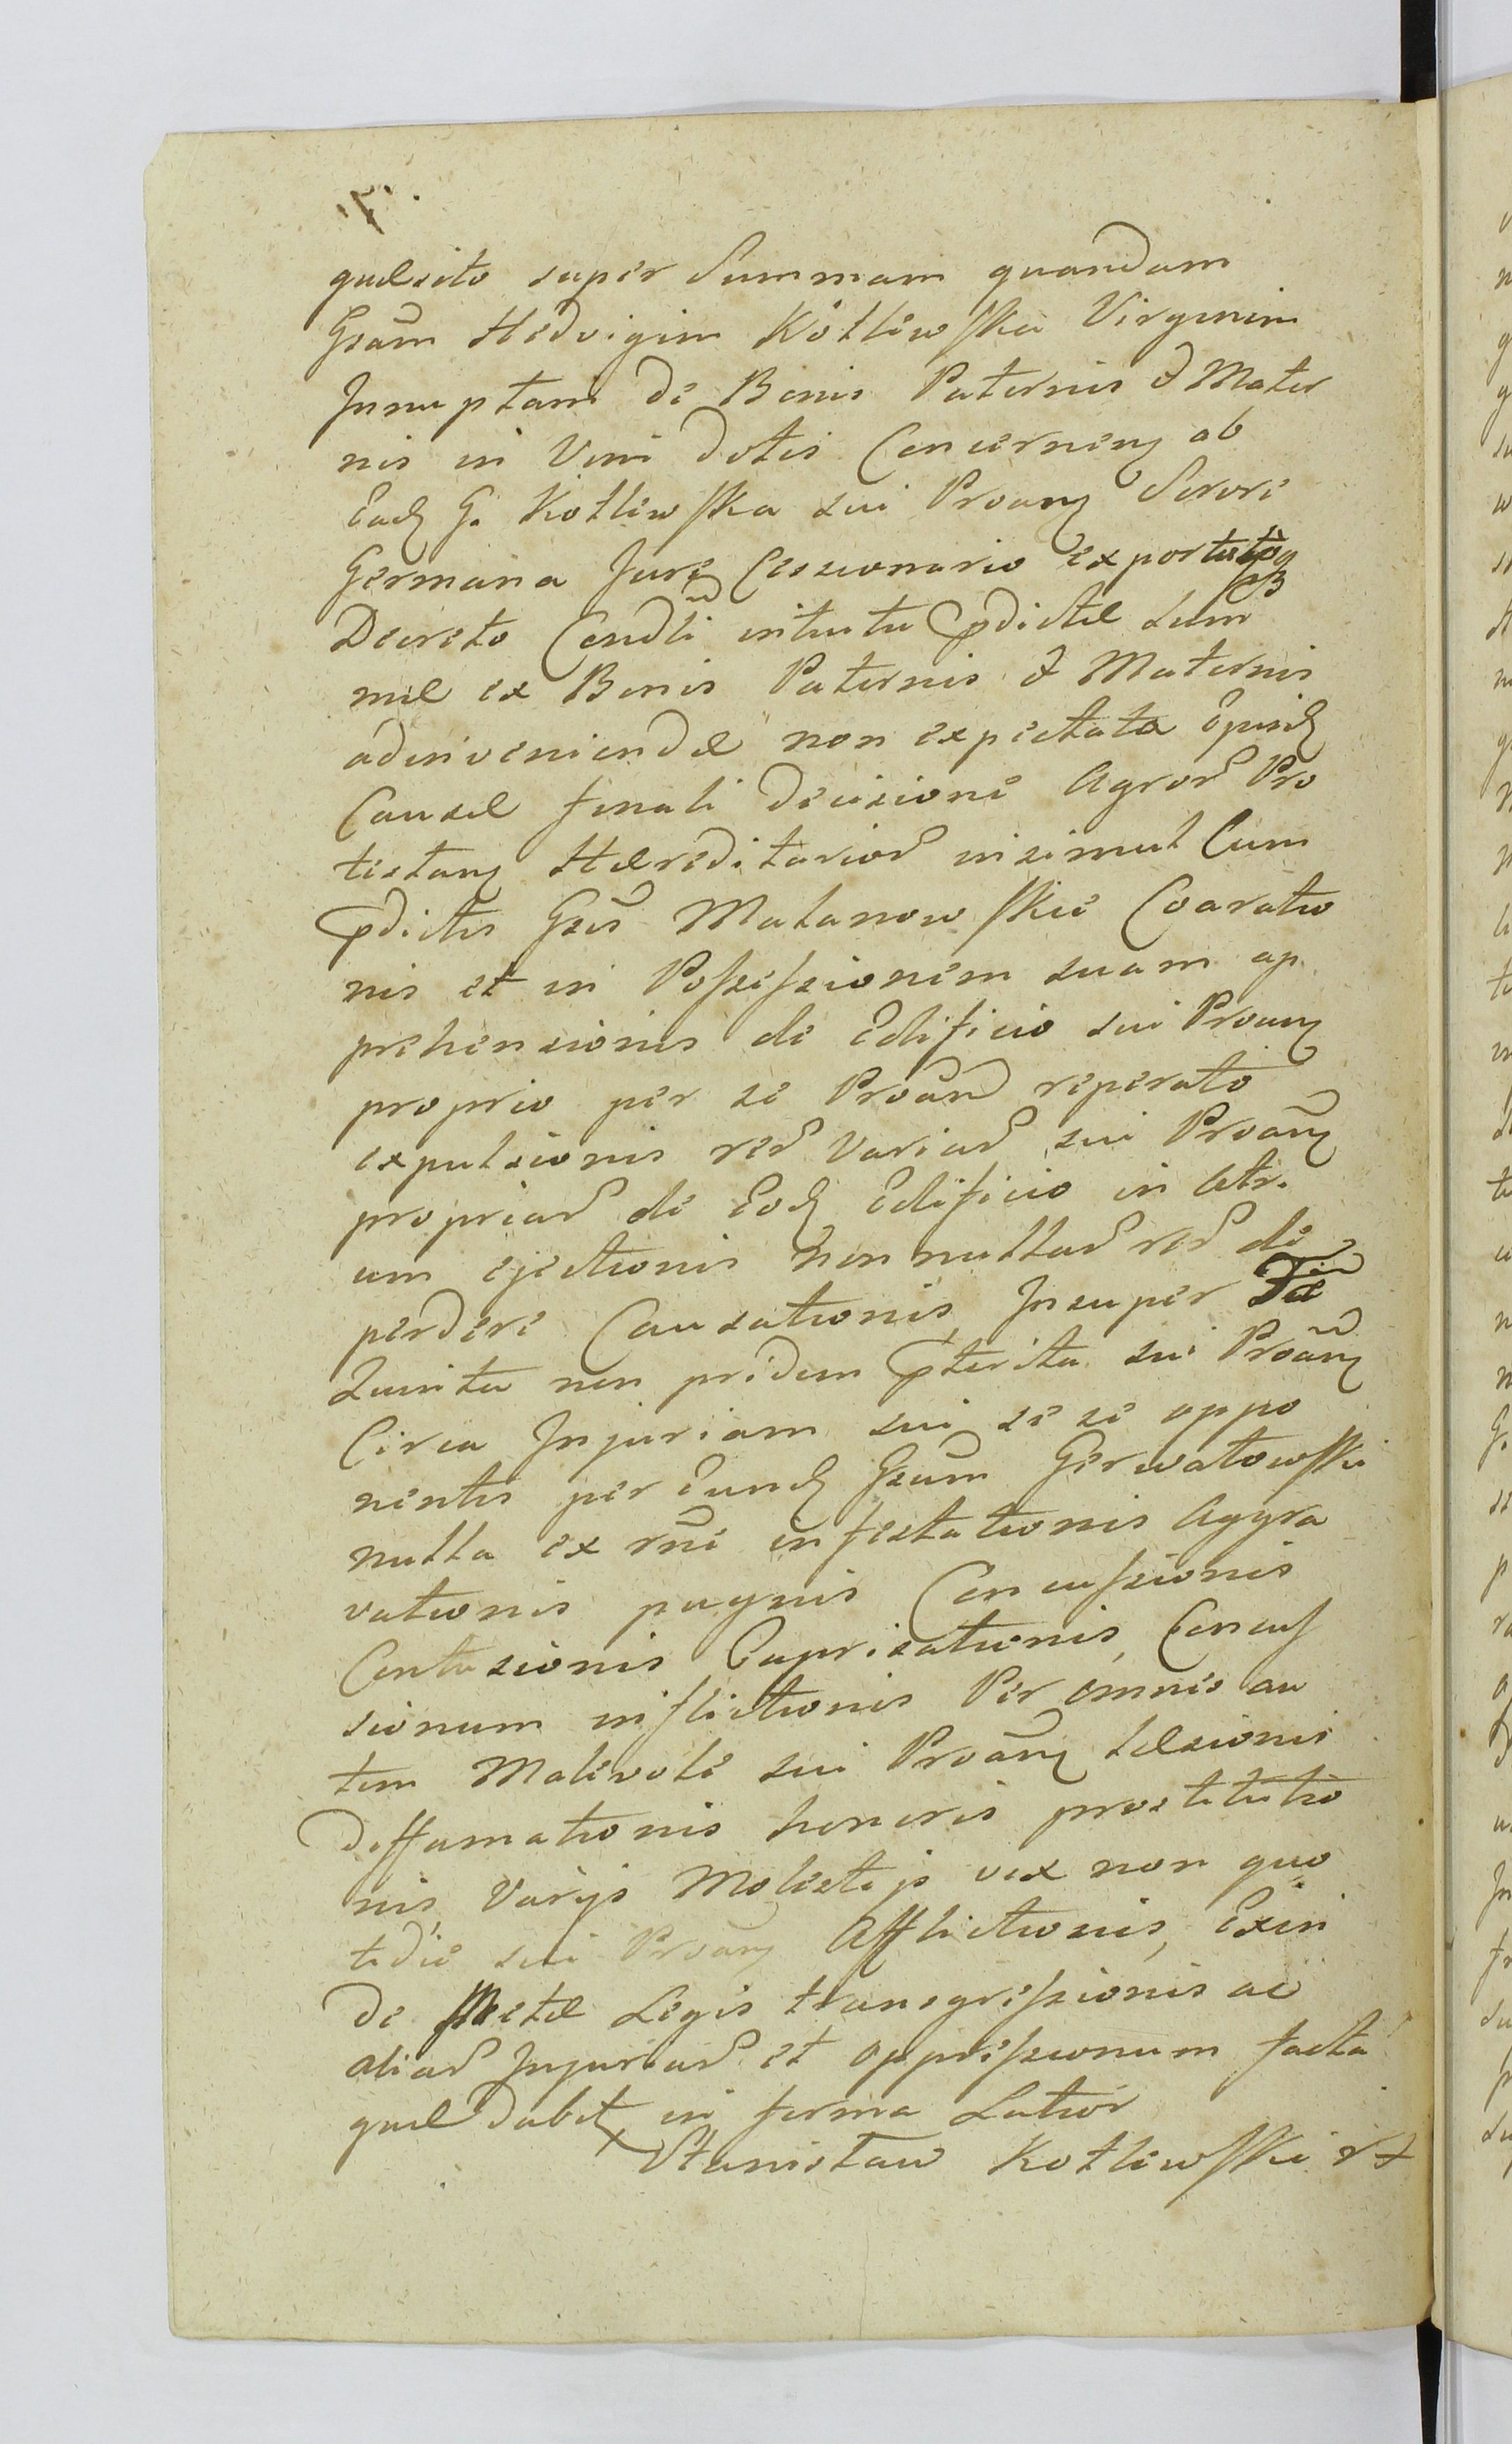 7.
quæsito super Summam quandam
Gsam Hedvigim Kotlewska Virginem
Innuptam de Bonis Paternis & Mater
nis in Vim dotis Concernen ab
Ead G. Kotlewska sui Proan Sorore
Germana Jure Cessionario exportato
Decreto Condli intuitu pdictæ Sum
mæ ex Bonis Paternis & Maternis
adinveniendæ non expectata
Causæ finali decisione Agror Pro
testan Hæreditarior insimul Cum
pdictis Gsis Matanowskie Coaratio
nis et in Possessionem suam ap
prehensionis de Edificio sui Proan
proprio per se Proan reperato
expulsionis rer Variar sui Proan
propriar de Eod Edificio in Atri
um ejectionis non nullar rer de
perdere Causationis, Insuper
Quinta non pridem pterita sui Proan
Circa Injuriam sui se se oppo
nentis per Eund Gsum Gerwatowski
nulla ex rne infestationis Aggra
vationis pugnis Concussionis
Contusionis Caprisationis, Concus
sionum inflictionis Per omnes au
tem Malevole sui Proan læsionis
diffamationis honoris prostitutio
nis, Varijs Molestijs vix non quo
tidie sui Proan Afflictionis, Exin
de Metæ Legis transgressionis ac
aliar Injuriar et oppressionum facta
quæ dabit in forma Latior
Stanisław Kotlewski